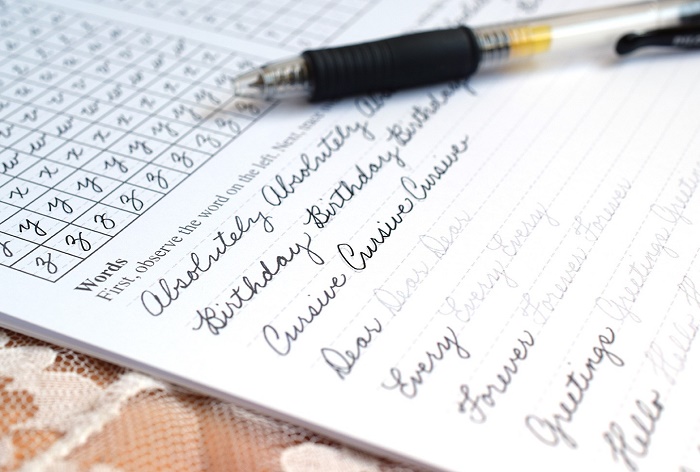 w w w w
x x x x x
y y y y y y y
z z z z z z z z
Words
First, observe the word on the left. Next, trace
Absolutely Absolutely
Birthday Birthday Birthday
Cursive Cursive Cursive
Dear Dear Dear
Every Every Every
Forever Forever Forever
Greetings Greetings
Hello Hello